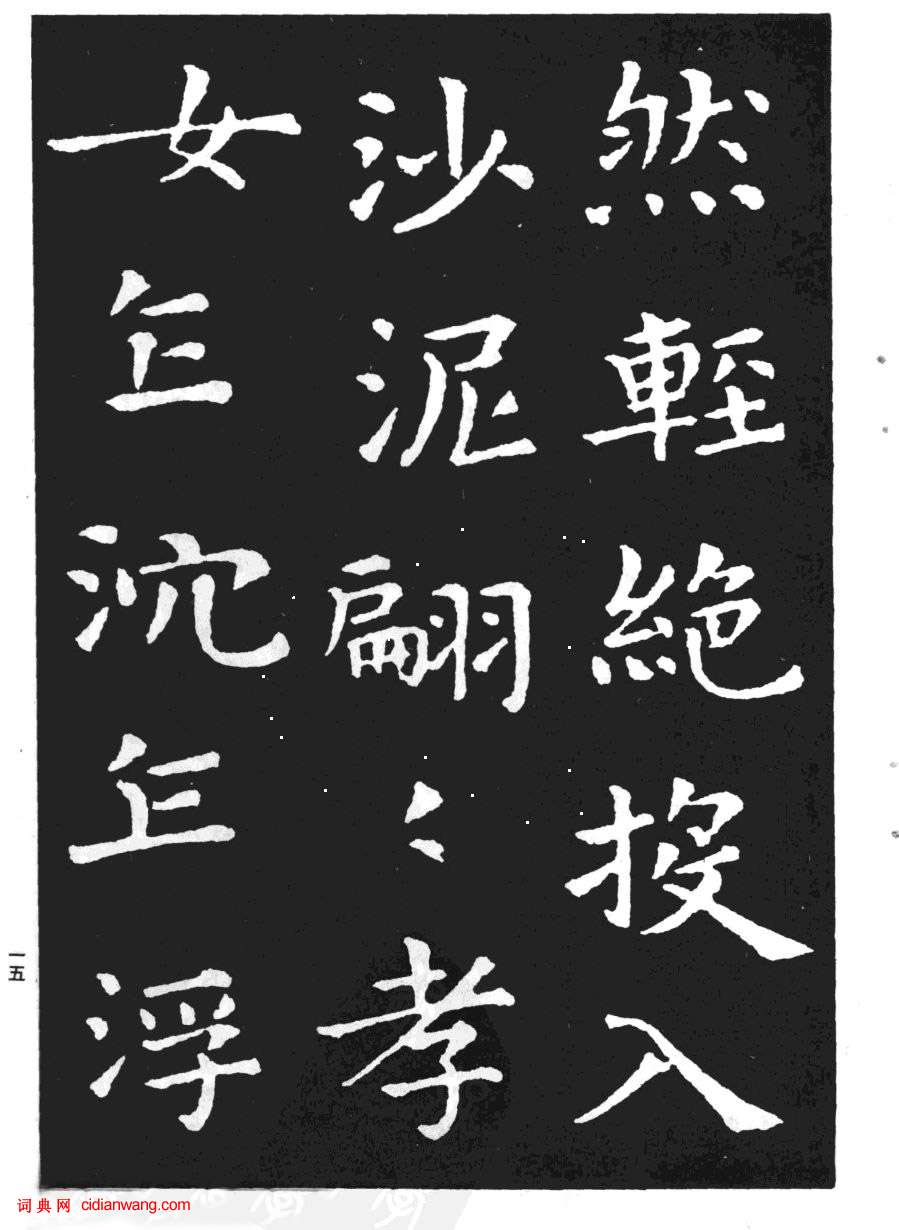 然輕絕投入
沙泥翩〻孝
女乍沈乍浮
一五
词典网 cidianwang.com